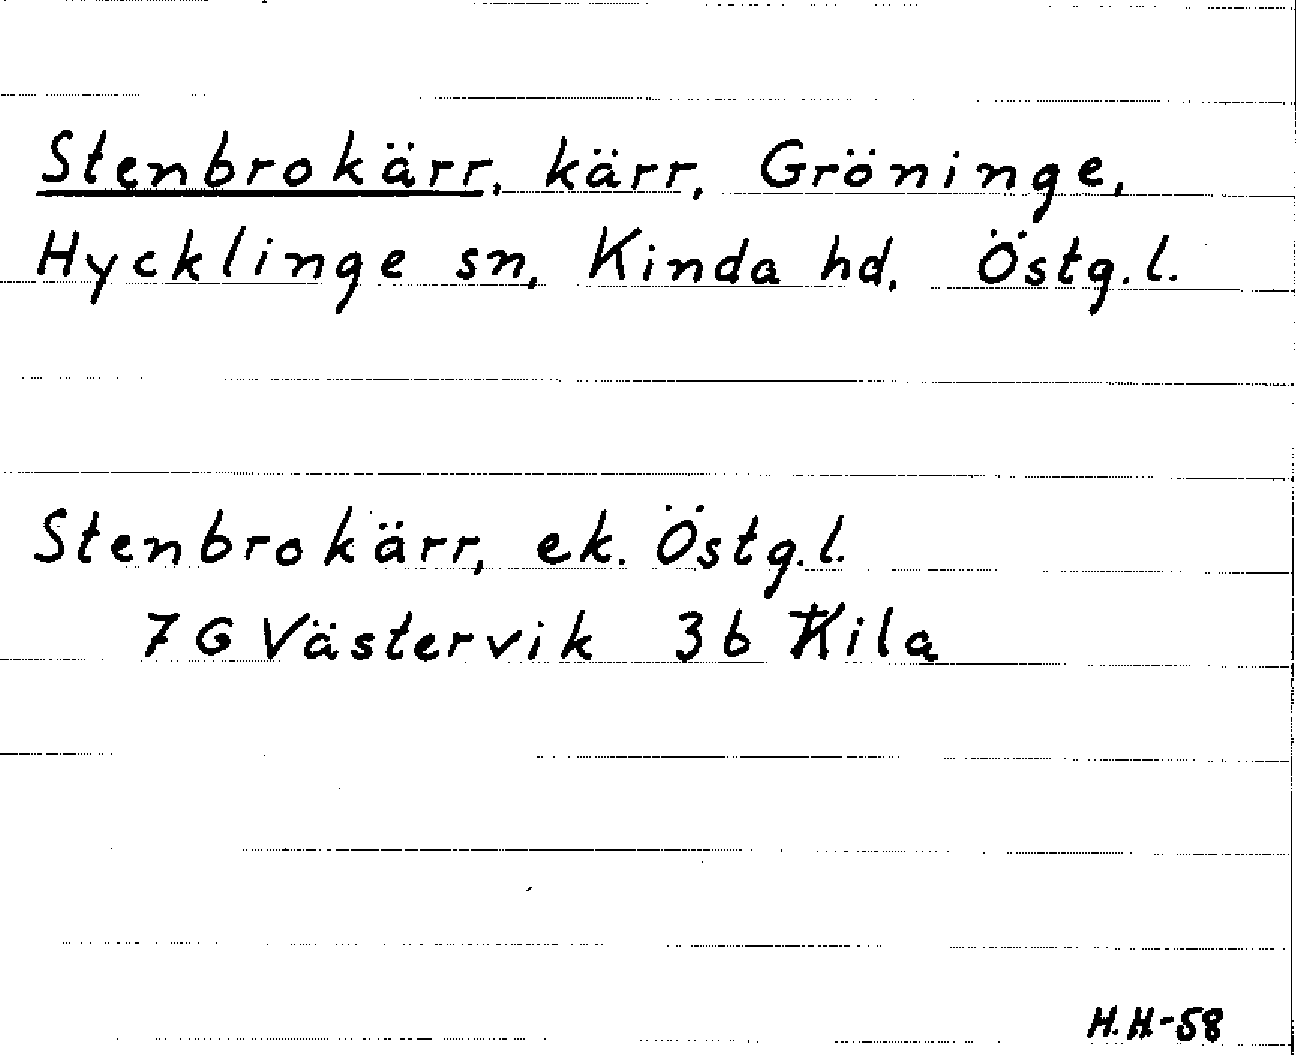 Stenbrokärr, kärr, Gröninge,
Hycklinge sn, Kinda hd, Östg.l.
Stenbrokärr, ek. Östg.l.
7 G Västervik 3b Kila
H.H-58